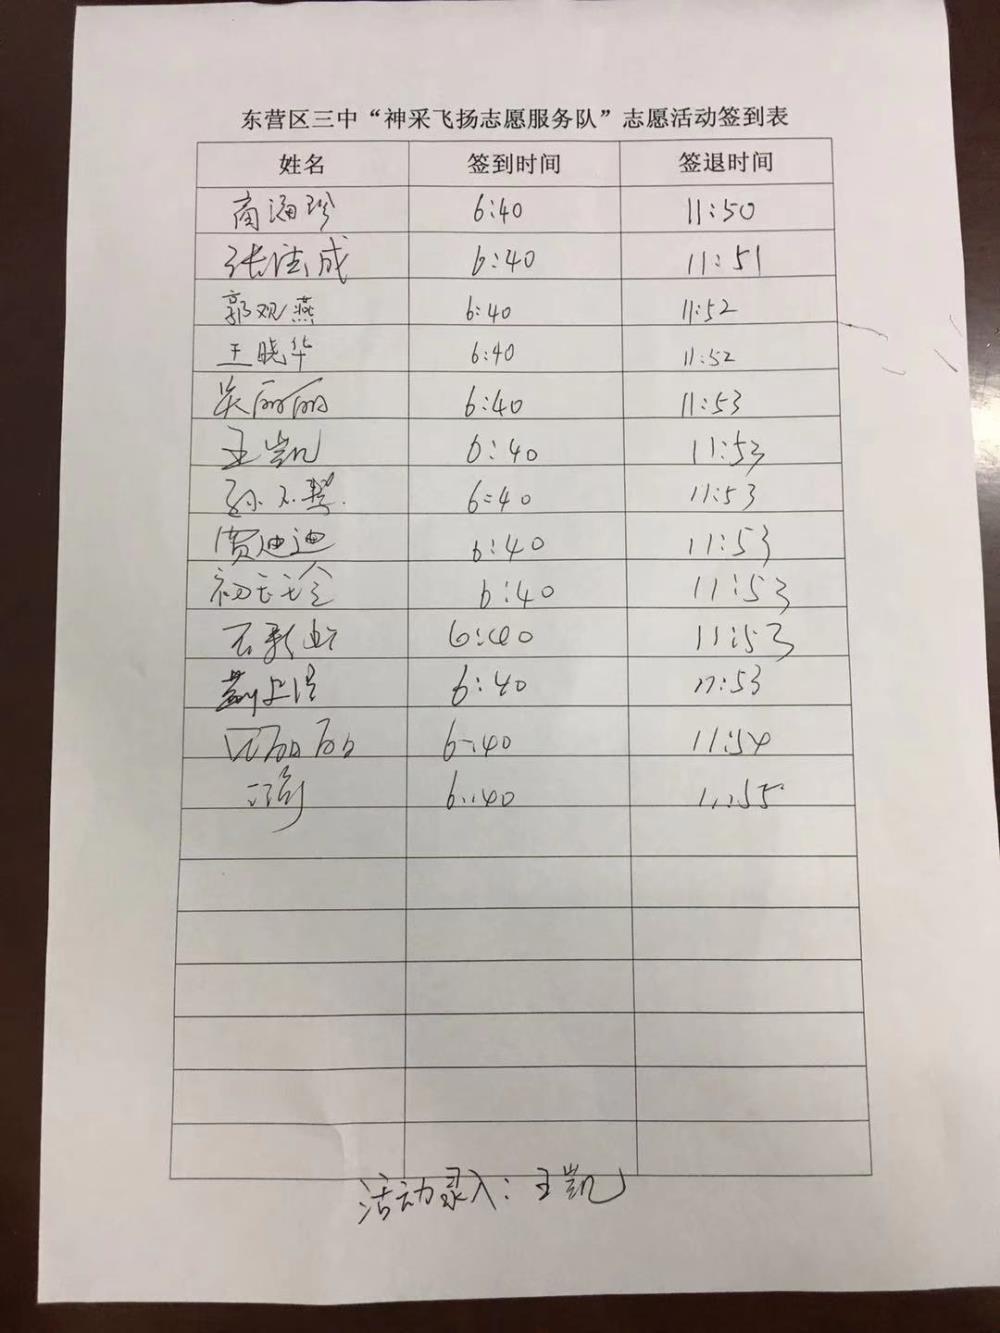 东营区三中“神采飞扬志愿服务队”志愿活动签到表
姓名 签到时间 签退时间
商海珍 6:40 11:50
张法成 6:40 11:51
郭观燕 6:40 11:52
王晓华 6:40 11:52
吴丽丽 6:40 11:53
王凯 6:40 11:53
孙 6:40 11:53
贾迪迪 6:40 11:53
初 6:40 11:53
石彩虹 6:40 11:53
6:40 11:53
丽丽 6:40 11:54
6:40 11:55
活动录入：王凯